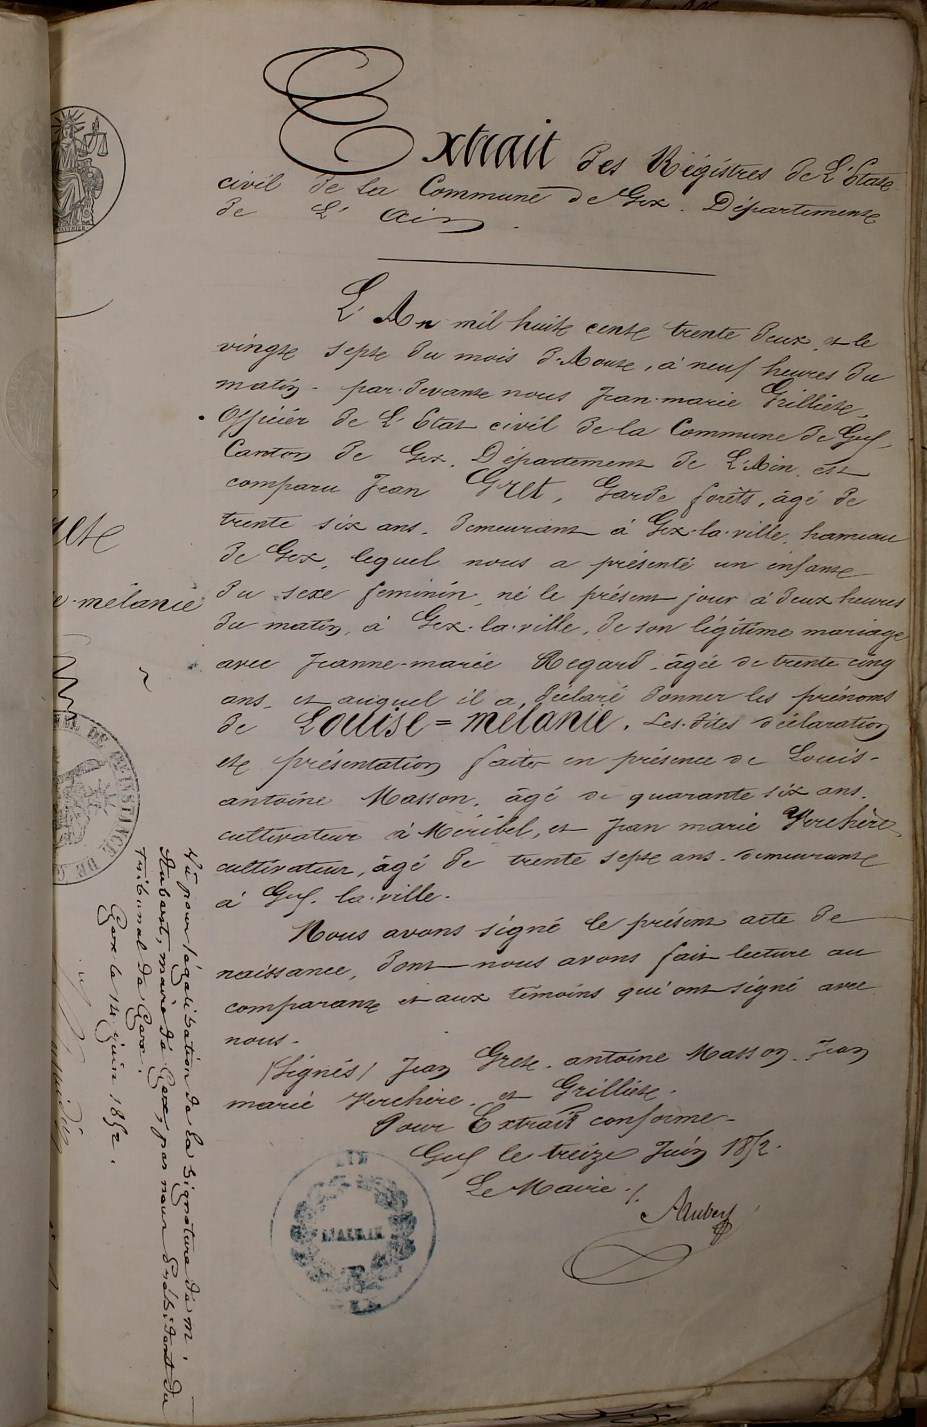 Extrait des Régistres de L'Etat
civil de la Commune de Gex. Département
de L' Ain
L'An mil huit cent trente deux et le
vingt sept du mois d'Aout, à neuf heures du
matin, par devant nous Jean-marie Grilliet,
Officiér de L'Etat civil de la Commune de Gex,
Canton de Gex, Département de L'Ain est
comparu Jean Gret, Garde forêts, âgé de
trente six ans, demeurant à Gex-la-ville, hameau
de Gex, lequel nous a présenté un enfant
du sexe feminin, né le présent jour à deux heures
du matin, à Gex-la-ville, de son légitime mariage
avec Jeanne-marie Regard, âgée de trente cinq
ans, et auquel il a déclaré donner les prénoms
de Louise=mélanie. Les dites déclaration
et présentation faites en présence de Louis-
antoine Masson, âgé de quarante six ans,
cultivateur à Méribel, et Jean marie Verchère,
cultivateur, âgé de trente sept ans, demeurant
à Gex-la-ville.
Nous avons signé le présent acte de
naissance, dont nous avons fait lecture au
comparant et aux témoins qui ont signé avec
nous.
(Signés) Jean Gret, antoine Masson, Jean
marie Verchère, et Grilliet.
Pour Extrait conforme
Gex le treize Juin 1852.
Le Maire
Aubert
mélanie
Vu pour légalisation de la signature de m.
Aubert, maire de Gex, par nous Président du
Tribunal de Gex.
Gex le 14 juin 1852.
MAIRIE
INSTANCE DE